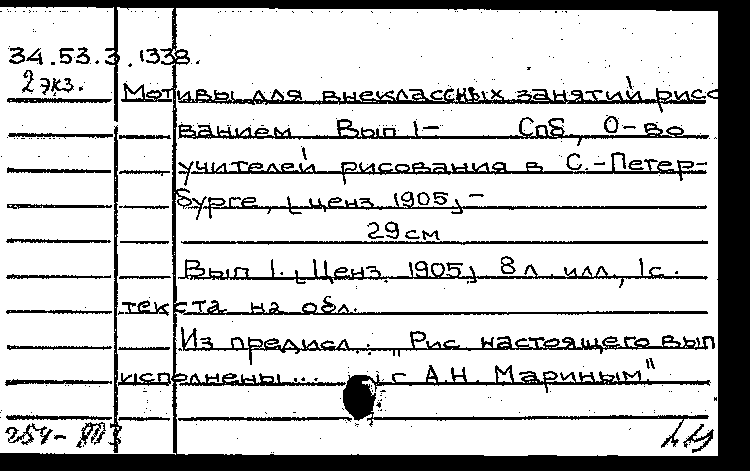 34.53.3.1338.
2 экз.
Мотивы для внеклассных занятий рисо
ванием Вып 1- Спб, О-во
учителей рисования в С.-Петер-
бурге, [ценз 1905] -
29 см
Вып 1. [Ценз 1905] 8 л. илл., 1 с.
текста на обл.
Из предисл.: „Рис настоящего вып
исполнены... г А.Н. Мариным"
254-